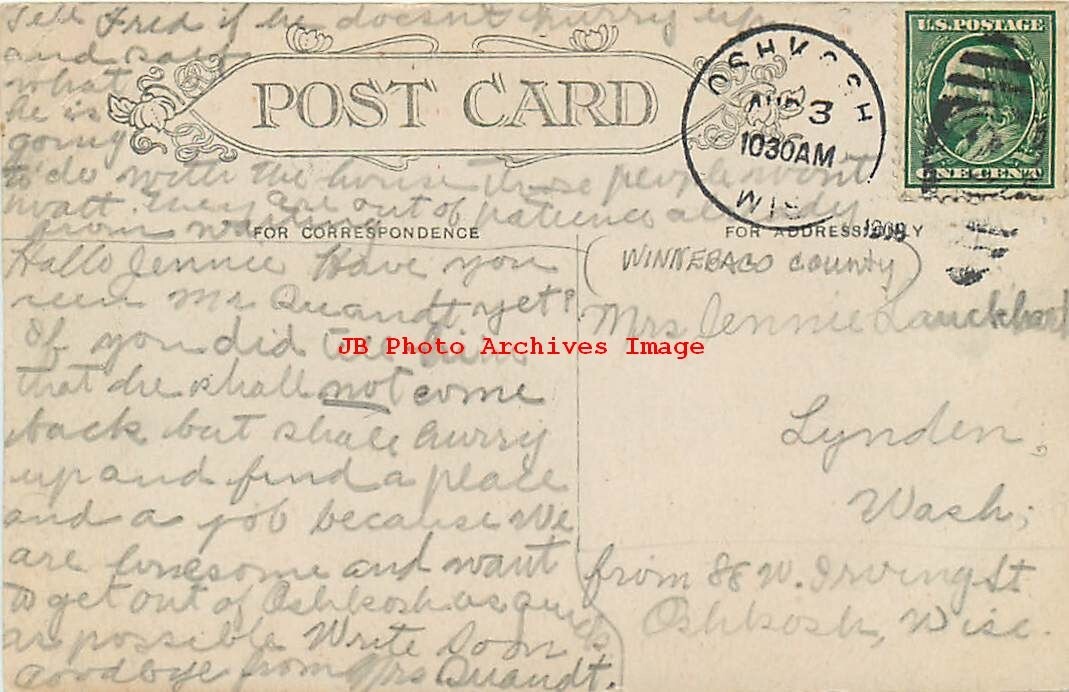 Tell Fred if he doesn't hurry up
and say
what
he is
going
to do with the house these people wont
wait. They are out of patience already
from waiting
POST CARD
OSHKOSH
AUG 3
1030AM
WIS.
1909
U.S. POSTAGE
ONE CENT
FOR CORRESPONDENCE
FOR ADDRESS ONLY
Hallo Jennie Have you
seen Mr Quandt yet?
If you did tell him
that he shall not come
back but shall hurry
up and find a place
and a job because We
are lonesome and want
to get out of Oshkosh as quick
as possible Write Soon
Goodbye from Mrs Quandt.
(WINNEBAGO County)
Mrs Jennie Lauckhart
Lynden,
Wash,
from 88 W. Irving St
Oshkosh, Wisc.
JB Photo Archives Image